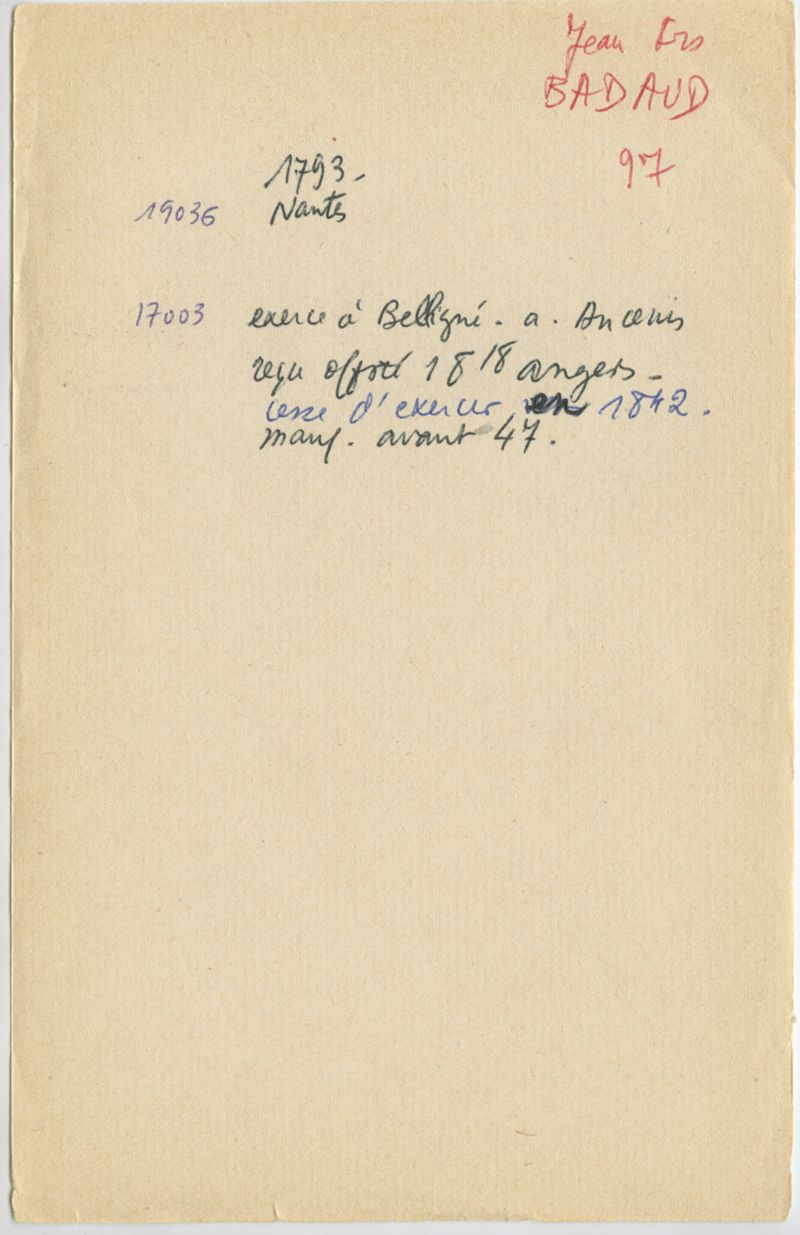 Jean Frs
BADAUD
97
1793.
19036 Nantes
17003 exerce à Belligné. a. Ancenis
reçu off. 1818 angers.
cesse d'exercer en 1842.
manq. avant 47.